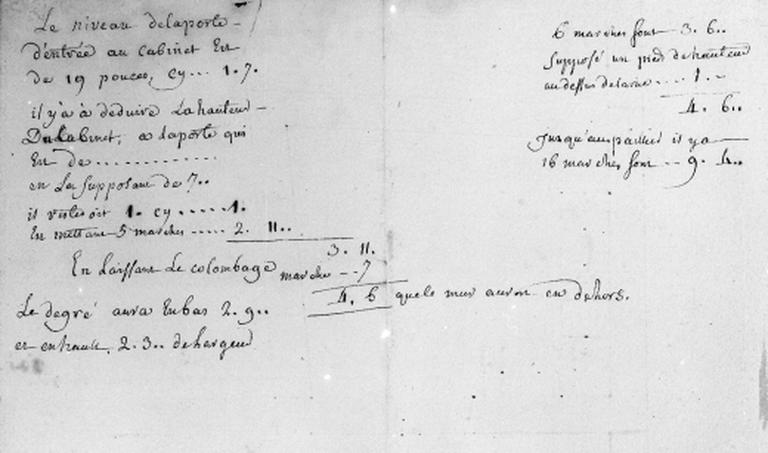 Le niveau delaporte –
d'entrée au Cabinet Est
de 19 pouces, cy... 1. 7.
il y'a à deduire La hauteur –
Du Cabinet, a laporte qui
Est de ..............
en La supposant de 7..
il resteroit 1. cy ..... 1.
En mettant 5 marches ..... 2. 11..
3. 11.
En Laissant Le colombage marche -- 7
4. 6 quele mur auront en dehors.
Le degré aura Enbas 2. 9..
et enhault, 2. 3.. delargeur
6 marches font 3. 6..
Supposé un pied dehauteur
au dessus .... 1. –
4. 6..
Jusqu'aupallier il ya
16 marches font -- 9. 4..